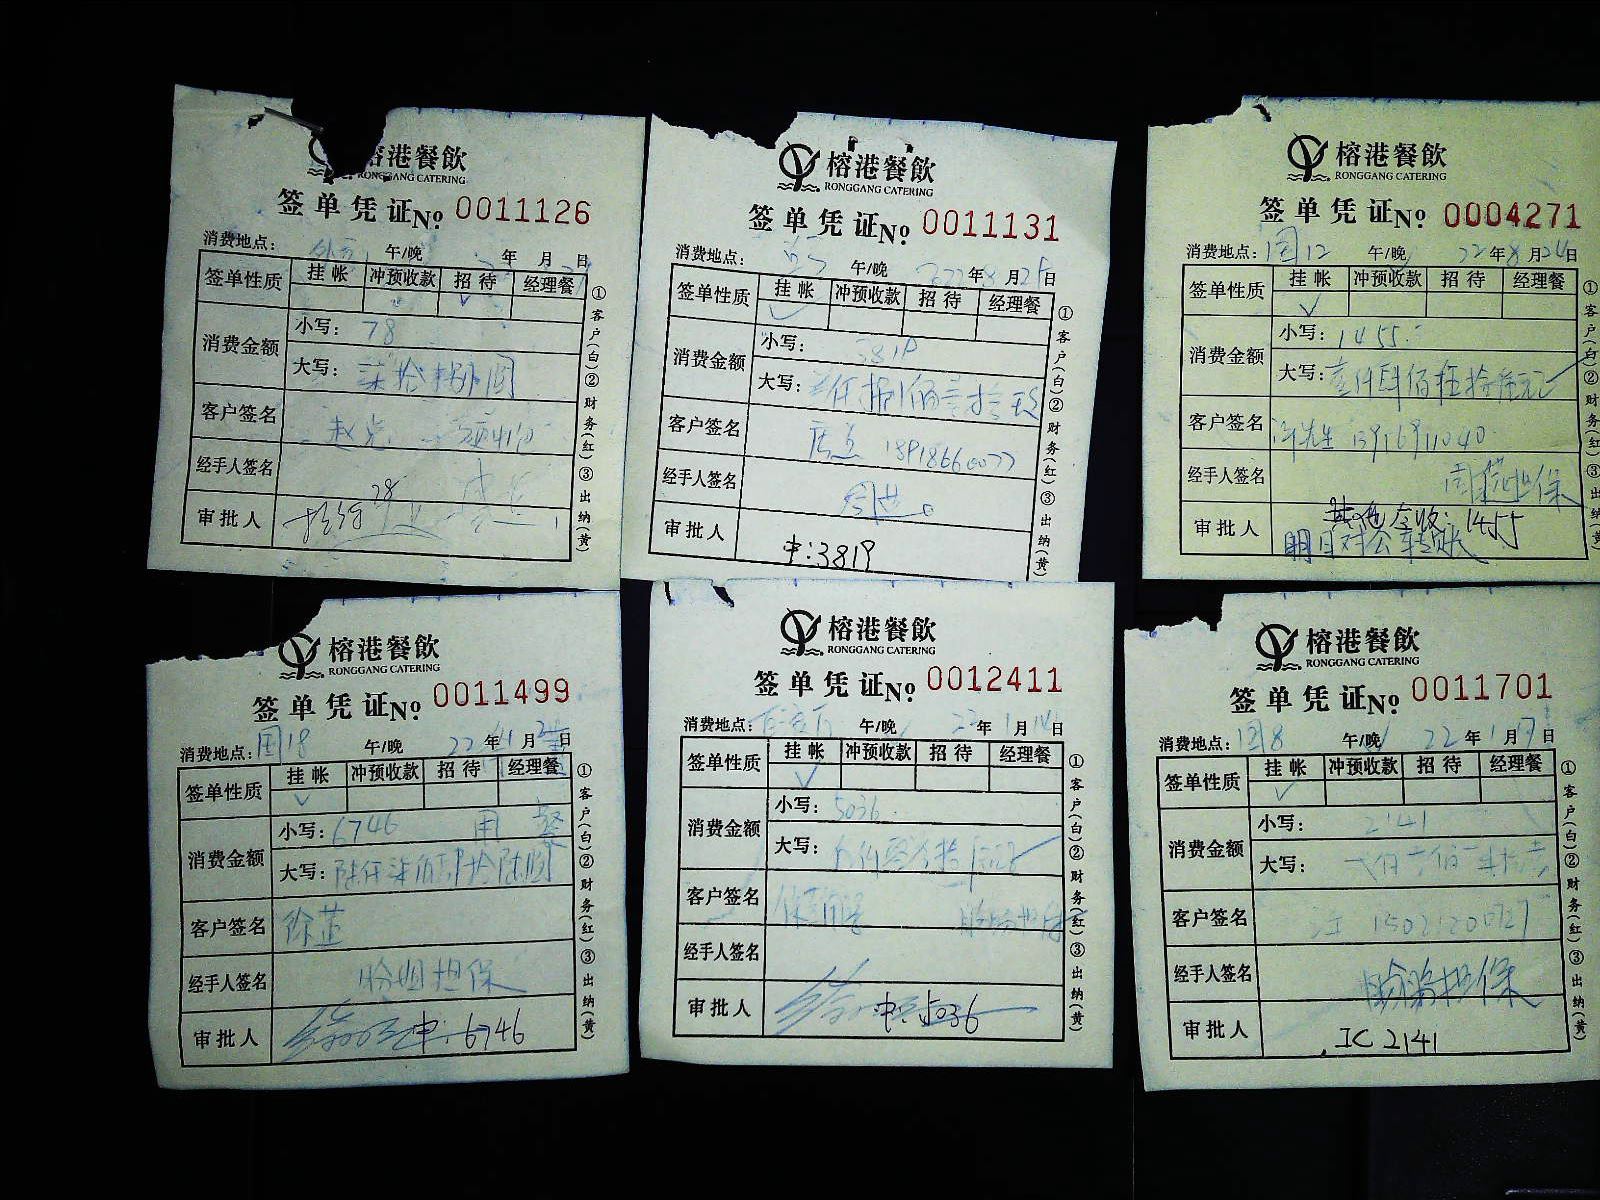 榕港餐飲
RONGGANG CATERING
签单凭证№ 0011126
消费地点: 午/晚 年 月 日
签单性质 挂帐 冲预收款 招待 经理餐
消费金额 小写: 78
大写: 柒拾捌圆
客户签名
经手人签名
审批人
①客户(白)②财务(红)③出纳(黄)
榕港餐飲
RONGGANG CATERING
签单凭证№ 0011131
消费地点: 午/晚 年 8 月 日
签单性质 挂帐 冲预收款 招待 经理餐
✓
消费金额 小写: 381P
大写:
客户签名 18918660077
经手人签名
审批人 中:3819
①客户(白)②财务(红)③出纳(黄)
榕港餐飲
RONGGANG CATERING
签单凭证№ 0004271
消费地点: 国12 午/晚 22 年 8 月 24 日
签单性质 挂帐 冲预收款 招待 经理餐
✓
消费金额 小写: 1455.
大写: 壹仟肆佰伍拾伍元
客户签名 许先生 13916911040
经手人签名 担保
审批人 其他应收: 1455
明日对公转帐
①客户(白)②财务(红)③出纳(黄)
榕港餐飲
RONGGANG CATERING
签单凭证№ 0011499
消费地点: 国18 午/晚 22 年 月 日
签单性质 挂帐 冲预收款 招待 经理餐
✓
消费金额 小写: 6746
大写: 陆仟柒佰肆拾陆圆
客户签名 徐芷
经手人签名 盼姐担保
审批人 中: 6746
①客户(白)②财务(红)③出纳(黄)
榕港餐飲
RONGGANG CATERING
签单凭证№ 0012411
消费地点: 午/晚 22 年 1 月 14 日
签单性质 挂帐 冲预收款 招待 经理餐
✓
消费金额 小写: 5036
大写:
客户签名
经手人签名
审批人 中: 5036
①客户(白)②财务(红)③出纳(黄)
榕港餐飲
RONGGANG CATERING
签单凭证№ 0011701
消费地点: 国8 午/晚 22 年 1 月 7 日
签单性质 挂帐 冲预收款 招待 经理餐
✓
消费金额 小写: 2141
大写:
客户签名 江 15021200727
经手人签名 担保
审批人 IC 2141
①客户(白)②财务(红)③出纳(黄)